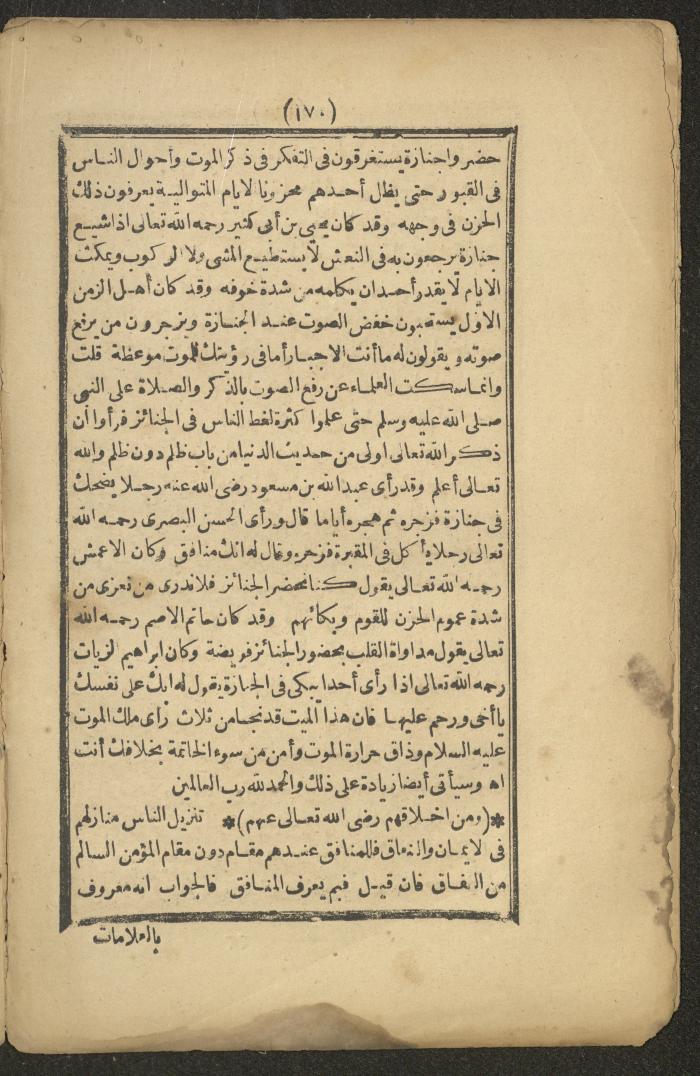 (١٧٠)
حضروا جنازة يستغرقون فى التفكر فى ذكر الموت وأحوال الناس
فى القبور حتى يظل أحدهم محزونا لايام المتوالية يعرفون ذلك
الحزن فى وجهه وقد كان يحيى بن أبى كثير رحمه الله تعالى اذا شيع
جنازة يرجعون به فى النعش لا يستطيع المشى ولا الركوب ويمكث
الايام لا يقدر أحد ان يكلمه من شدة خوفه وقد كان أهل الزمن
الاول يستحبون خفض الصوت عند الجنازة ويزجرون من يرفع
صوته ويقولون له ما أنت الاجبار أما فى رؤيتك للموت موعظة قلت
وانما سكت العلماء عن رفع الصوت بالذكر والصلاة على النبى
صلى الله عليه وسلم حتى علموا كثرة لغط الناس فى الجنائز فرأوا أن
ذكر الله تعالى اولى من حديث الدنيا من باب ظلم دون ظلم والله
تعالى أعلم وقد رأى عبد الله بن مسعود رضى الله عنه رجلا يضحك
فى جنازة فزجره ثم هجره أياما قال ورأى الحسن البصرى رحمه الله
تعالى رجلا يأكل فى المقبرة فزجره وقال له انك منافق وكان الاعمش
رحمه الله تعالى يقول كنا نحضر الجنائز فلا ندرى من نعزى من
شدة عموم الحزن للقوم وبكائهم وقد كان حاتم الاصم رحمه الله
تعالى يقول مداواة القلب بحضور الجنائز فريضة وكان ابراهيم الزيات
رحمه الله تعالى اذا رأى أحدا يبكى فى الجنازة يقول له ابك على نفسك
يا أخى ورحم عليها فان هذا الميت قد نجا من ثلاث رأى ملك الموت
عليه السلام وذاق حرارة الموت وأمن من سوء الخاتمة بخلافك أنت
اه وسيأتى أيضا زيادة على ذلك والحمد لله رب العالمين
*(ومن اخلاقهم رضى الله تعالى عنهم)* تنزيل الناس منازلهم
فى الايمان والنفاق فللمنافق عندهم مقام دون مقام المؤمن السالم
من النفاق فان قيل فبم يعرف المنافق فالجواب انه معروف
بالعلامات